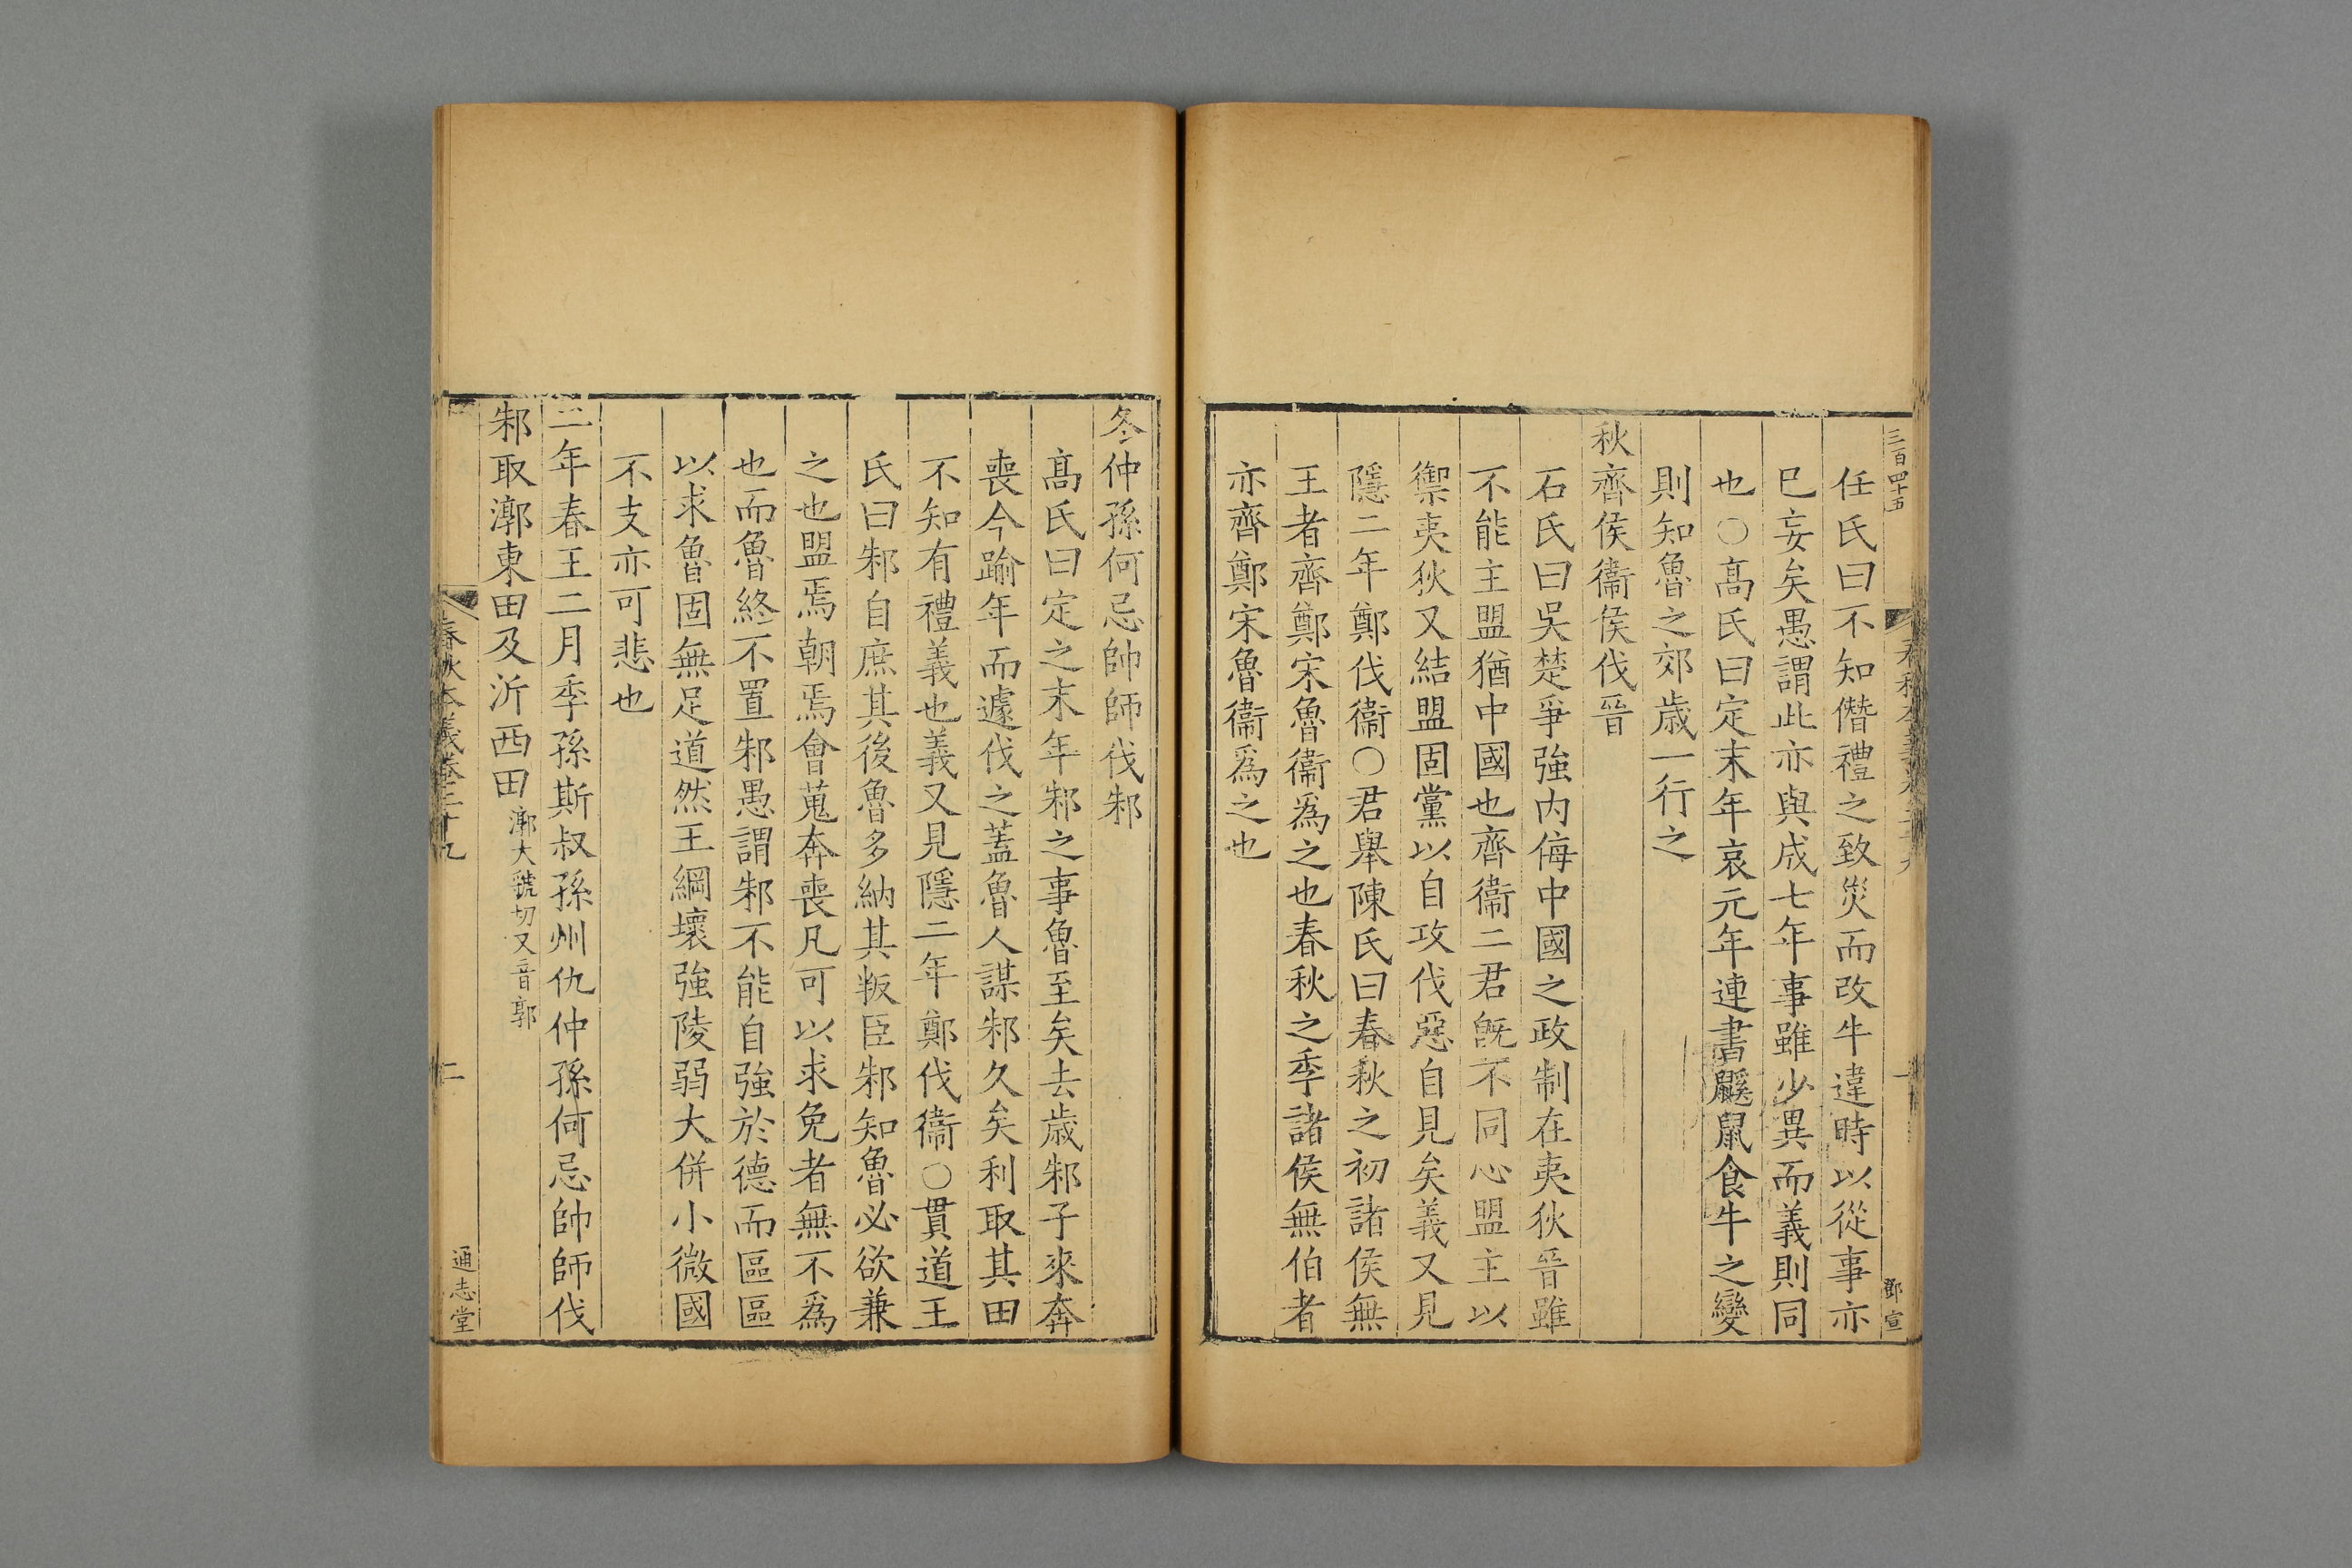 三百四十五
鄧宣
任氏曰不知僭禮之致災而改牛違時以從事亦
巳妄矣愚謂此亦與成七年事雖少異而義則同
也○髙氏曰定末年哀元年連書鼷鼠食牛之變
則知魯之郊歳一行之
秋齊侯衞侯伐晉
石氏曰吳楚爭強内侮中國之政制在夷狄晉雖
不能主盟猶中國也齊衞二君旣不同心盟主以
禦夷狄又結盟固黨以自攻伐惡自見矣義又見
隱二年鄭伐衞○君舉陳氏曰春秋之初諸侯無
王者齊鄭宋魯衞爲之也春秋之季諸侯無伯者
亦齊鄭宋魯衞爲之也
冬仲孫何忌帥師伐邾
髙氏曰定之末年邾之事魯至矣去歳邾子來奔
喪今踰年而遽伐之蓋魯人謀邾久矣利取其田
不知有禮義也義又見隱二年鄭伐衞○貫道王
氏曰邾自庶其後魯多納其叛臣邾知魯必欲兼
之也盟焉朝焉會蒐奔喪凡可以求免者無不爲
也而魯終不置邾愚謂邾不能自強於德而區區
以求魯固無足道然王綱壞強陵弱大併小微國
不支亦可悲也
二年春王二月季孫斯叔孫州仇仲孫何忌帥師伐
邾取漷東田及沂西田漷大虢切又音郭
春秋本義卷二十九
二
通志堂